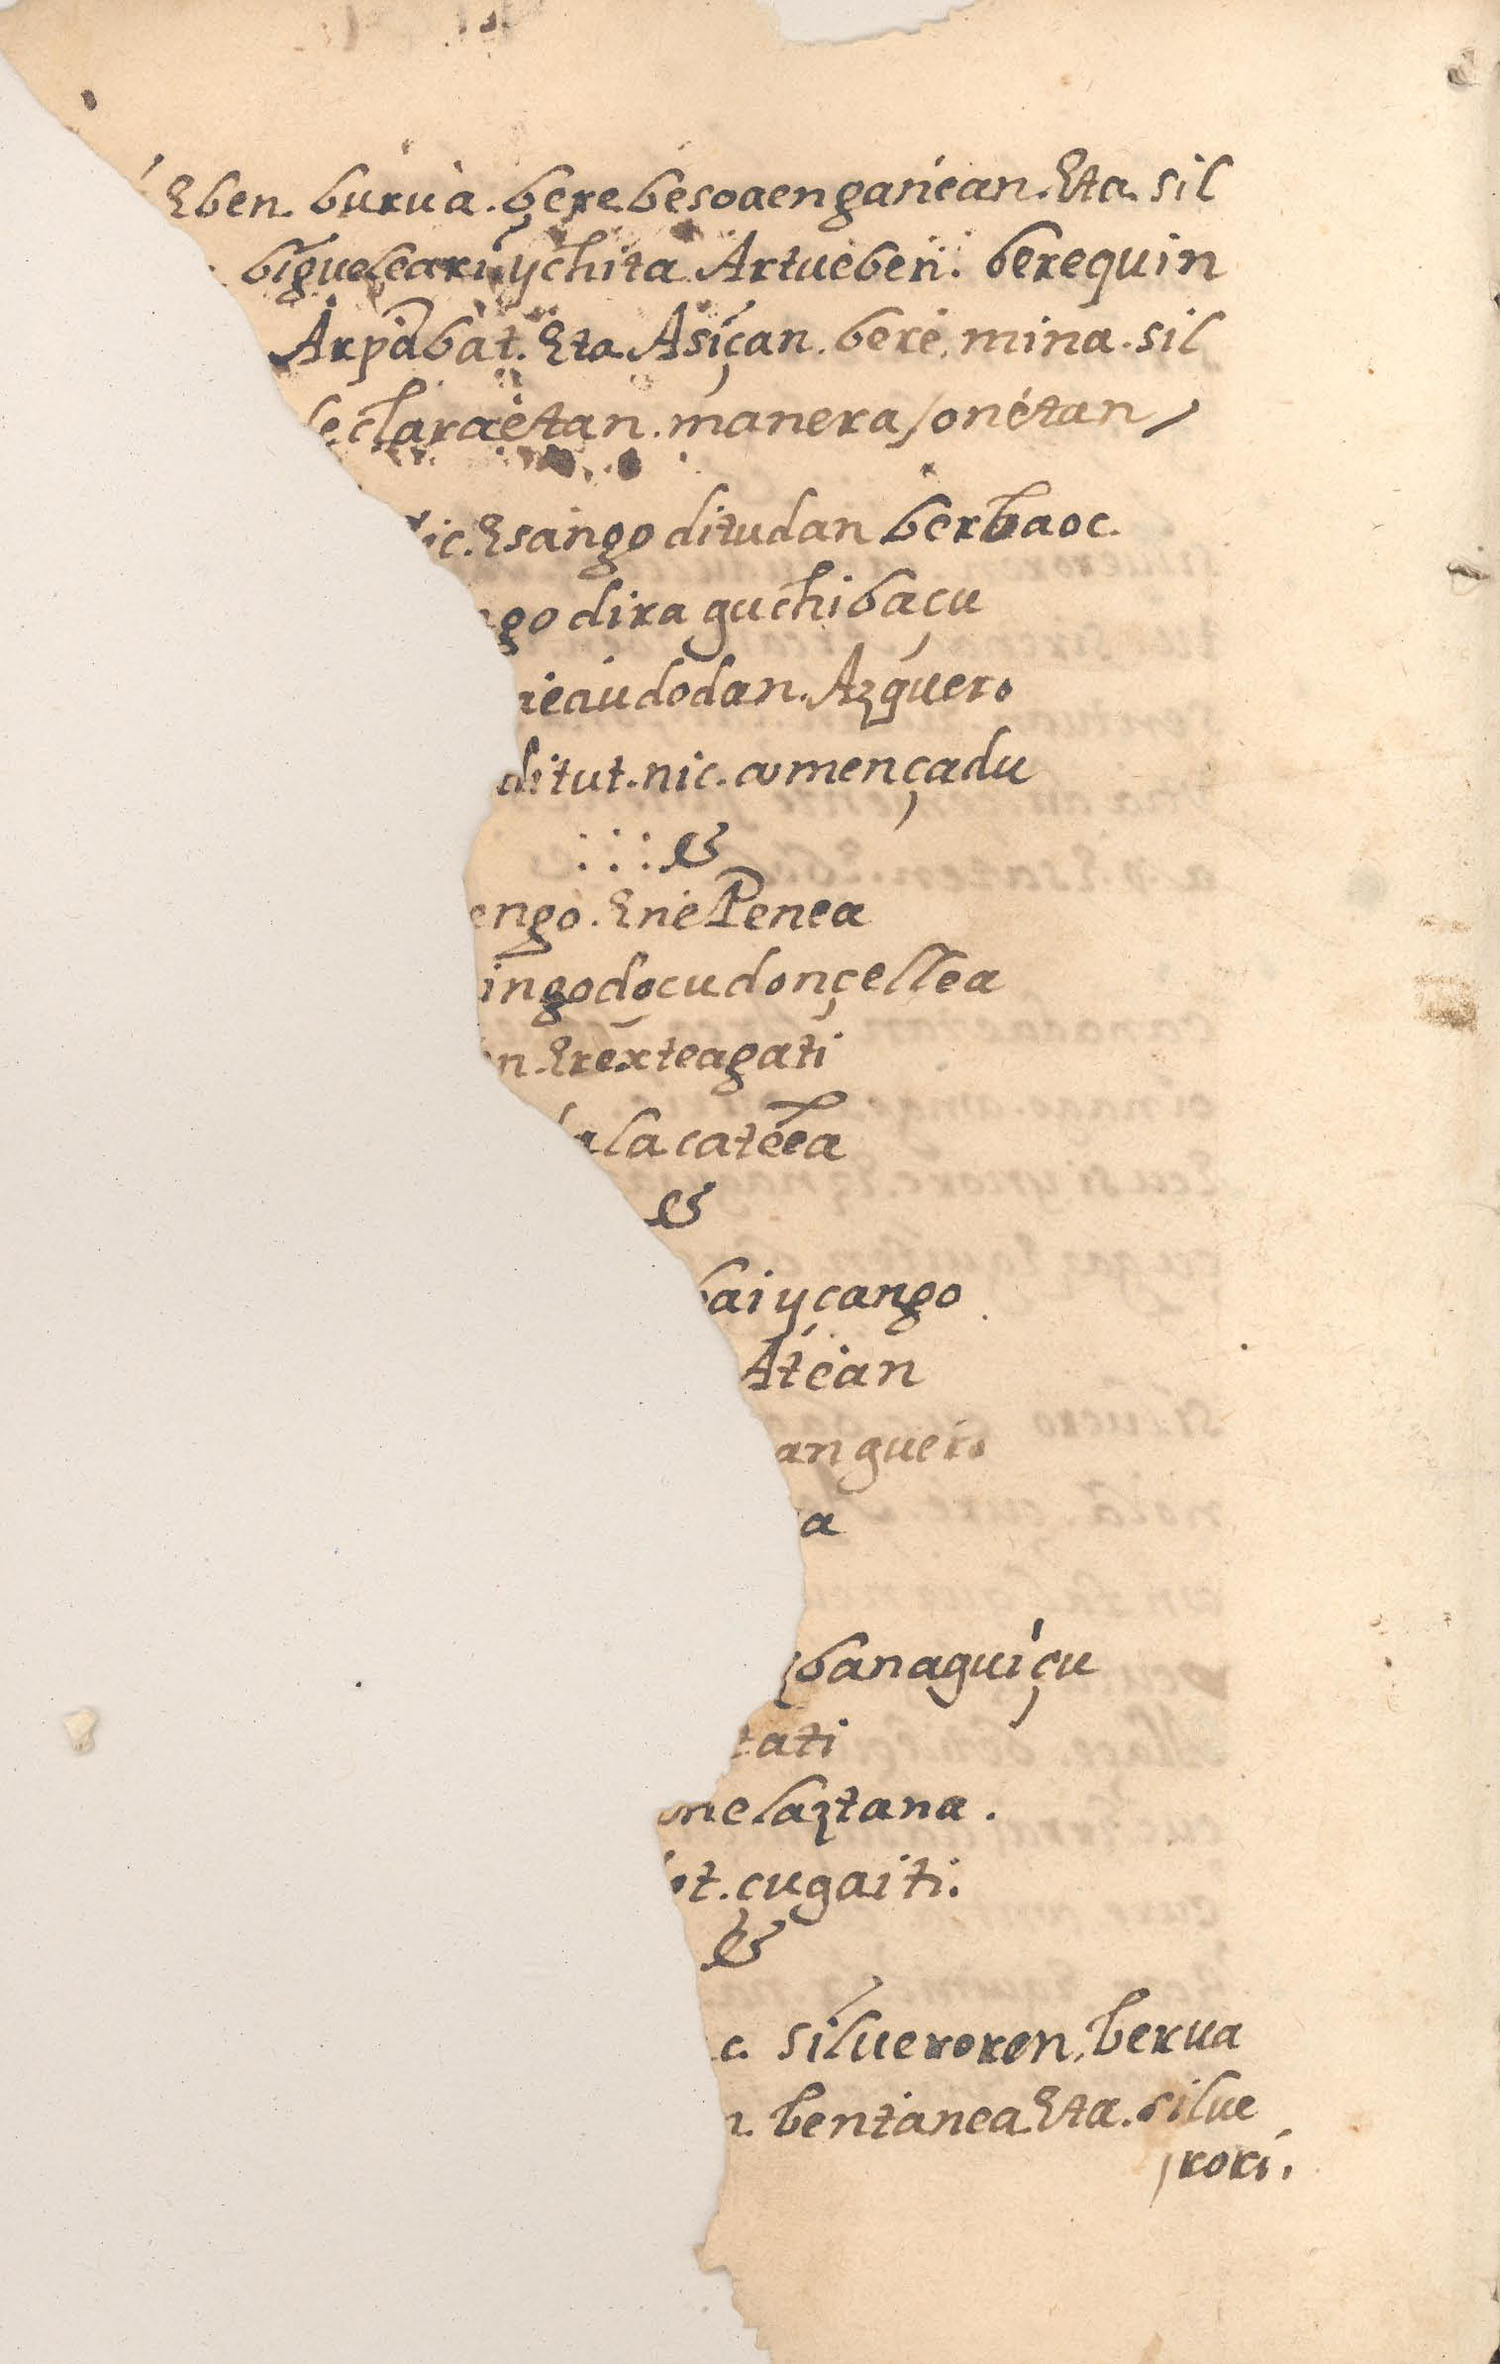 Eben. burua. bere besoaenganéan. Eta. sil
ychita Artueben. berequin
Arpabat. Eta Asiçan. bere. mina. sil
eclaraetan. manera, onétan,
ic. Esango ditudan berbaoc.
go dira guchibaçu
ieaudodan. Azguero
ditut. nic. començadu
: : : &
engo. Ene Penea
ingodocu donçellea
n. Erexteagati
la catéea
&
bai ycango
Atean
anguero
a
banaguiçu
tati
one laztana.
ot. çugaiti.
&
c. silueroren, berua
n. bentanea. Eta. silue
rori.